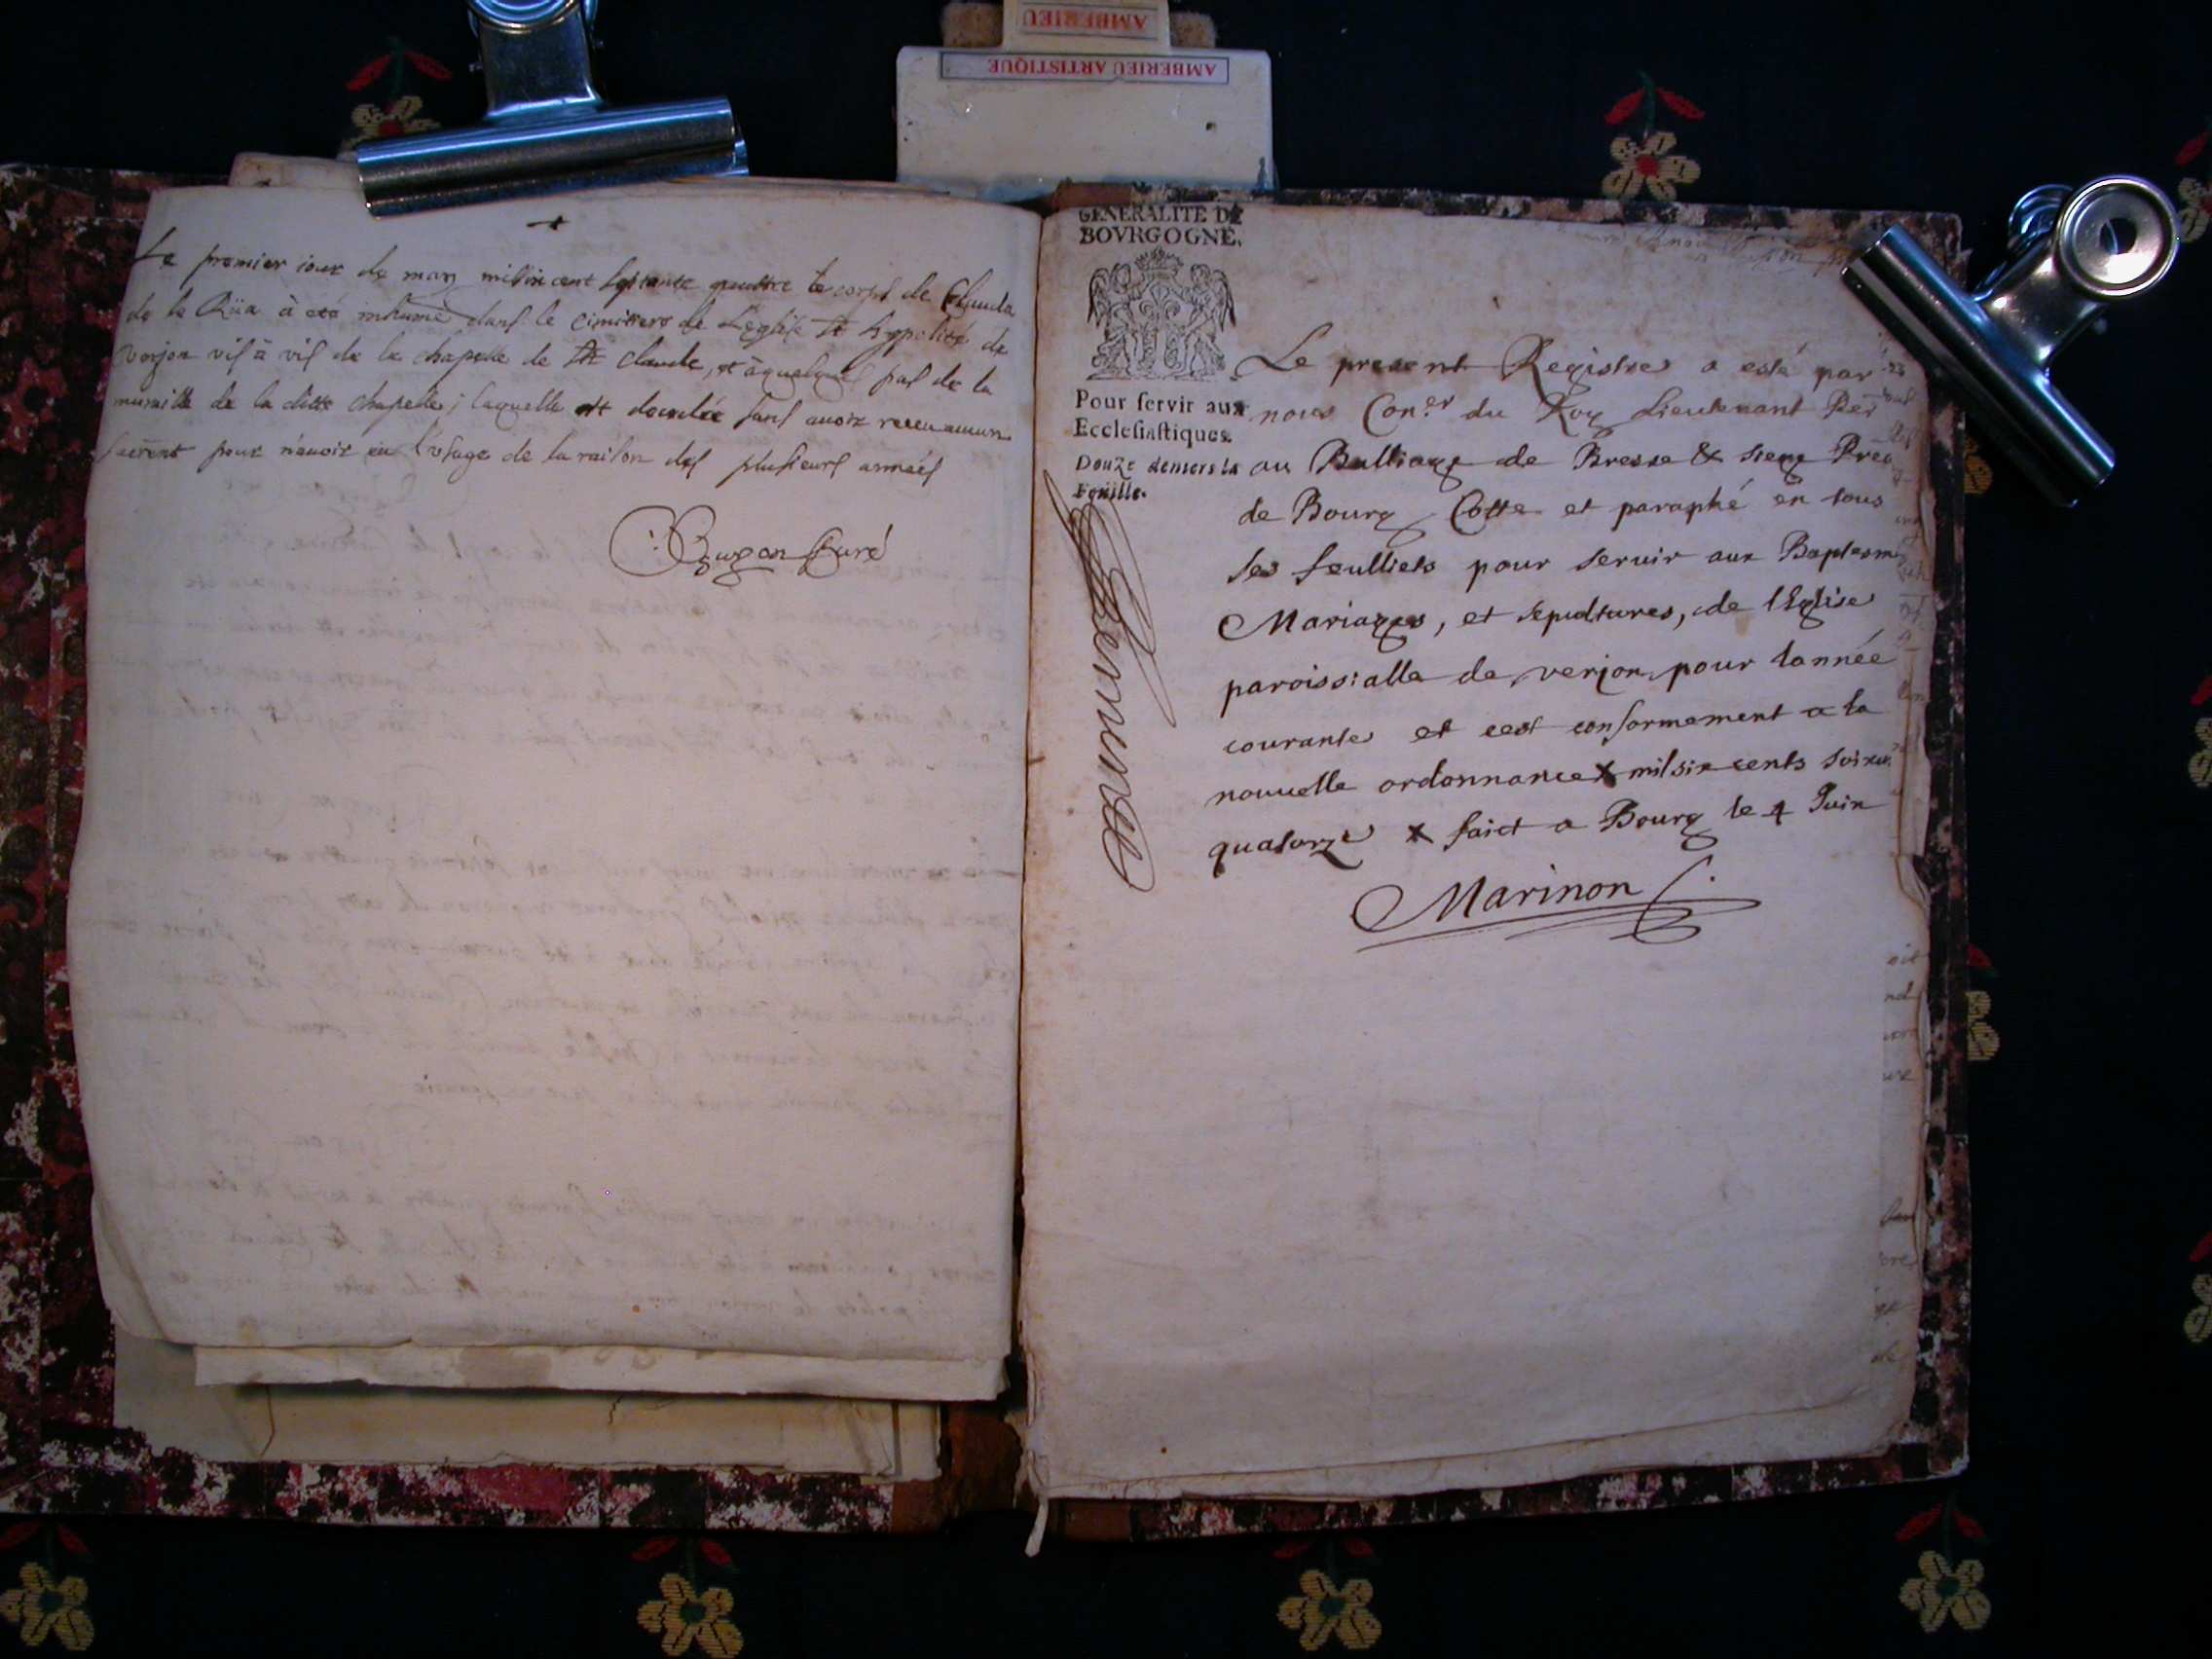 AMBERIEU
AMBERIEU ARTISTIQUE
Le premier iour de may mil six cent septante quattre le corps de Clauda
de la Rüa à eté inhumé dans le cimittere de L'eglise St hyppolite de
Verjon vis à vis de la chapelle de St Claude, et à quelques pas de la
muraille de la ditte chapelle; laquelle est decedée sans auoir receu aucun
sacrent pour n'auoir eu l'usage de la raison des plusieurs années
Curé
GENERALITE DE
BOVRGOGNE.
Pour servir aux
Ecclesiastiques.
Douze deniers la
Feüille.
Le present Registre a esté par
nous Con.er du Roy Lieutenant
au Balliage de Bresse & siege
de Bourg Cotte et paraphé en tous
ses feulliets pour seruir aux
Mariages, et sepultures, de l'Eglise
paroissialle de verjon pour lannée
courante et cest conformement a la
nouuelle ordonnance x mil six cents
quatorze x faict a Bourg le 4 Juin
Marinon